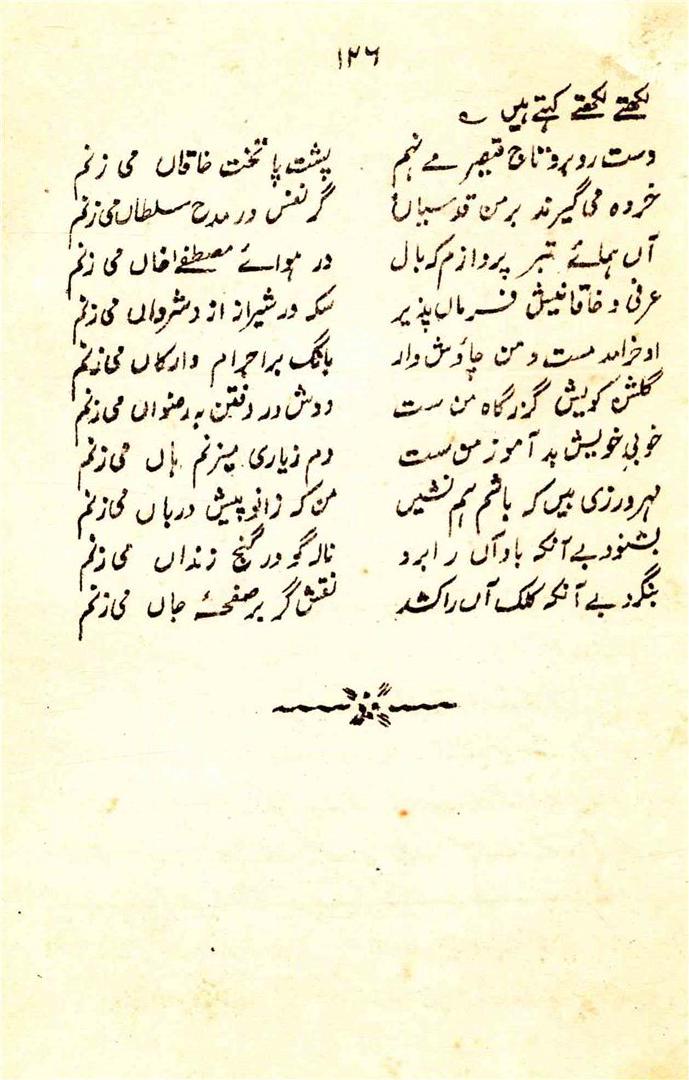 ۱۲۶
لکھتے لکھتے کہتے ہیں ؎
دست رد بر تاج قیصر مے نہم پشت پا بر تخت خاقاں می زنم
خردہ می گیرند بر من قدسیاں گر نفس در مدح سلطاں می زنم
آں ہمائے تیز پروازم کہ بال در ہوائے مصطفےٰ خاں می زنم
عرفی و خاقانیش فرماں پذیر سکہ در شیراز از و شرواں می زنم
او خرامد مست و من چاؤش وار بانگ بر اجرام و ارکاں می زنم
گلشن کویش گزرگاہ من ست دوش در رفتن بہ رضواں می زنم
خوبی خویش بد آموز من ست دم ز یاری میزنم ہاں می زنم
مہرورزی بیں کہ باشم ہم نشیں من کہ زانو پیش درباں می زنم
بشنود بے آنکہ باد آں را برد نالہ گو در کنج زنداں می زنم
بنگرد بے آنکہ کلک آں را کشد نقش گر بر صفحۂ جاں می زنم